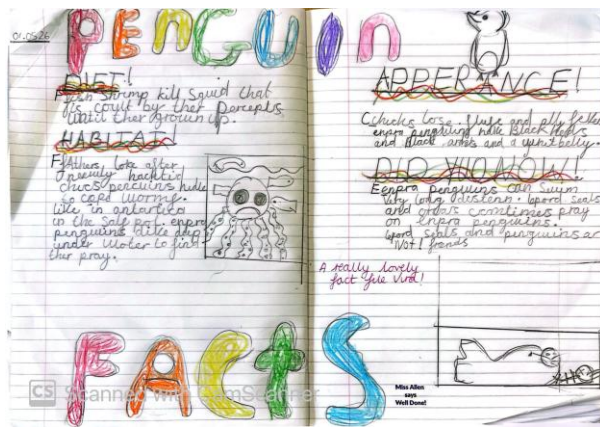 01.05.26
PENGUIN
DIET!
Fish Shrimp kill Squid that
is cout by ther Percepts
until ther grown up.
HABITAT!
Fathers loke after
newly hachtid
chics penguins hudle
so caped worme.
like in antartica
on the Salf enpra
penguins dike deep
under woter to find
ther pray.
APPERANCE!
Chicks lose flufe and
enpra penguins have Black Heds
and Black and a whit belly.
DID YO NOW!
Eenpra penguins can Swim
very long distenn. leperd seals
and orcars comtimes pray
on enpra penguins.
leperd seals and penguins ar
Not! frends
A really lovely
fact file Vird!
FACTS
Miss Allen
says
Well Done!
CS Scanned with CamScanner